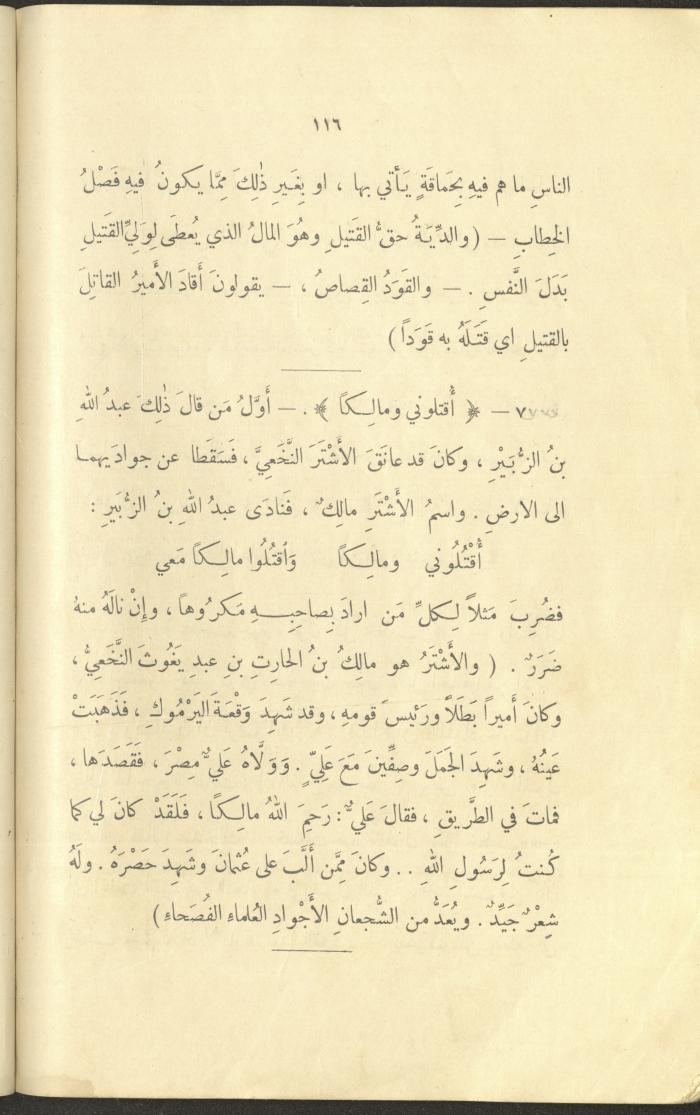 ١١٦
الناسِ ما هم فيهِ بِحَماقةٍ يَأتي بها ، او بِغَيرِ ذٰلِكَ مِمَّا يكونُ فيهِ فَصْلُ
الخِطابِ — (والدِّيَةُ حقُّ القَتيلِ وهُوَ المالُ الذي يُعطَى لِوَلِيِّ القَتيلِ
بَدَلَ النَّفسِ . — والقَوَدُ القِصاصُ ، — يقولونَ أَقادَ الأَميرُ القاتِلَ
بالقتيلِ اي قَتَلَهُ به قَوَداً )
٧ — ﴿ أُقتلوني ومالِكاً ﴾ . — أَوَّلُ مَن قالَ ذٰلِكَ عبدُ اللهِ
بنُ الزُّبَيْرِ ، وكانَ قد عانَقَ الأَشْتَرَ النَّخَعِيَّ ، فَسَقَطا عن جوادَيهما
الى الارضِ . واسمُ الأَشْتَرِ مالِكٌ ، فَنادَى عبدُ اللهِ بنُ الزُّبَيرِ :
أُقْتُلُوني ومالِكاً وَاقتُلُوا مالِكاً مَعي
فضُرِبَ مَثلاً لِكلِّ مَن ارادَ بِصاحِبِهِ مَكرُوهاً ، وإِنْ نالَهُ منهُ
ضَرَرٌ . ( والأَشْتَرُ هو مالِكُ بنُ الحارِثِ بنِ عبدِ يَغُوثَ النَّخَعِيُّ ،
وكانَ أَميراً بَطَلاً ورَئيسَ قومهِ ، وقد شَهِدَ وَقْعَةَ اليَرْمُوكِ ، فَذَهَبَتْ
عَينُهُ ، وشَهِدَ الجَمَلَ وصِفِّينَ مَعَ عَلِيٍّ . وَوَلَّاهُ عَليٌّ مِصْرَ ، فَقَصَدَها ،
فماتَ في الطَّريقِ ، فقالَ عَليٌّ : رَحِمَ اللهُ مالِكاً ، فَلَقَدْ كانَ لي كما
كُنتُ لِرَسُولِ اللهِ . . وكانَ مِمَّن أَلَّبَ على عُثمانَ وشَهِدَ حَصْرَهُ . ولَهُ
شِعْرٌ جَيِّدٌ . ويُعَدُّ من الشُّجعانِ الأَجْوادِ العُلماءِ الفُصَحاءِ )